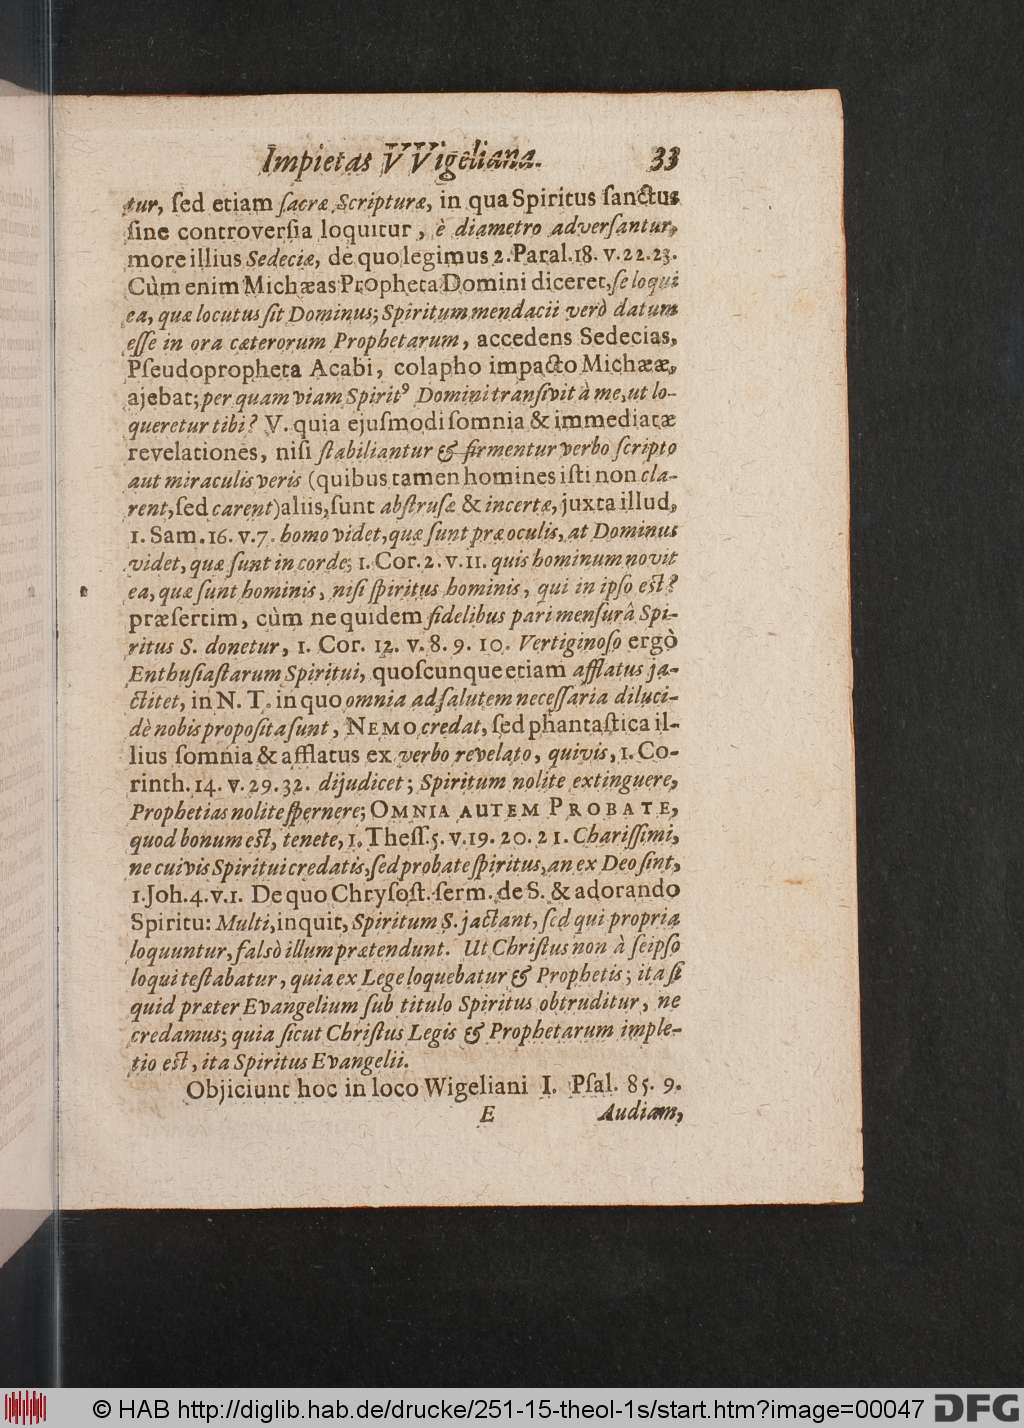 Impietas VVigeliana. 33
tur, ſed etiam ſacræ Scripturæ, in qua Spiritus ſanctus
ſine controverſia loquitur, è diametro adverſantur,
more illius Sedeciæ, de quo legimus 2. Paral. 18. v. 22. 23.
Cùm enim Michæas Propheta Domini diceret, ſe loqui
ea, quæ locutus ſit Dominus; Spiritum mendacii verò datum
eſſe in ora cæterorum Prophetarum, accedens Sedecias,
Pſeudopropheta Acabi, colapho impacto Michææ,
ajebat; per quam viam Spiritꝰ Domini tranſivit à me, ut lo-
queretur tibi? V. quia ejuſmodi ſomnia & immediatæ
revelationes, niſi ſtabiliantur & firmentur verbo ſcripto
aut miraculis veris (quibus tamen homines iſti non cla-
rent, ſed carent) aliis, ſunt abſtruſæ & incertæ, juxta illud,
1. Sam. 16. v. 7. homo videt, quæ ſunt præ oculis, at Dominus
videt, quæ ſunt in corde; 1. Cor. 2. v. 11. quis hominum novit
ea, quæ ſunt hominis, niſi ſpiritus hominis, qui in ipſo eſt?
præſertim, cùm ne quidem fidelibus pari menſurâ Spi-
ritus S. donetur, 1. Cor. 12. v. 8. 9. 10. Vertiginoſo ergò
Enthuſiaſtarum Spiritui, quoſcunque etiam afflatus ja-
ctitet, in N. T. in quo omnia ad ſalutem neceſſaria diluci-
dè nobis propoſita ſunt, NEMO credat, ſed phantaſtica il-
lius ſomnia & afflatus ex verbo revelato, quivis, 1. Co-
rinth. 14. v. 29. 32. dijudicet; Spiritum nolite extinguere,
Prophetias nolite ſpernere; OMNIA AUTEM PROBATE,
quod bonum eſt, tenete, 1. Theſſ. 5. v. 19. 20. 21. Chariſſimi,
ne cuivis Spiritui credatis, ſed probate ſpiritus, an ex Deo ſint,
1. Joh. 4. v. 1. De quo Chryſoſt. ſerm. de S. & adorando
Spiritu: Multi, inquit, Spiritum S. jactant, ſed qui propria
loquuntur, falsò illum prætendunt. Ut Chriſtus non à ſeipſo
loqui teſtabatur, quia ex Lege loquebatur & Prophetis; ita ſi
quid præter Evangelium ſub titulo Spiritus obtruditur, ne
credamus; quia ſicut Chriſtus Legis & Prophetarum imple-
tio eſt, ita Spiritus Evangelii.
Objiciunt hoc in loco Wigeliani I. Pſal. 85. 9.
E Audiam,
© HAB http://diglib.hab.de/drucke/251-15-theol-1s/start.htm?image=00047 DFG